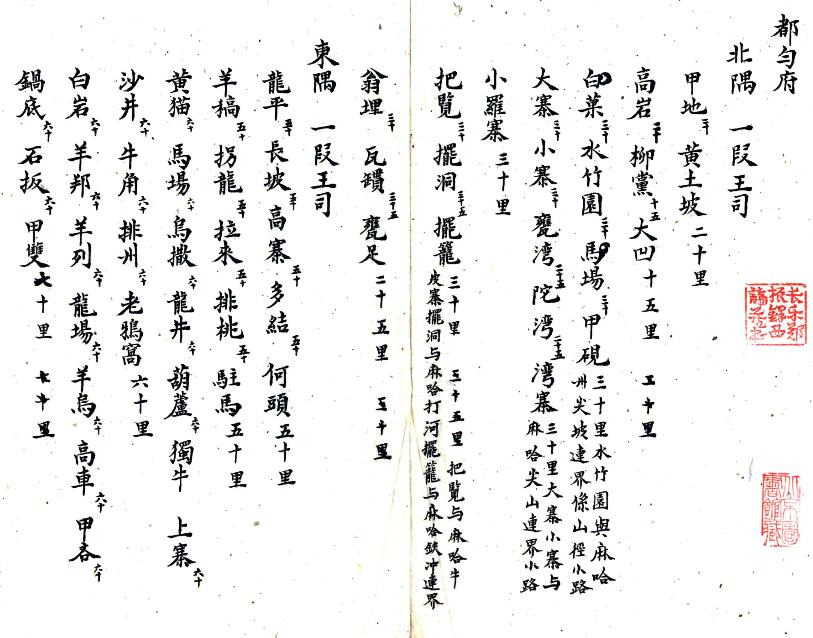 都勻府
北隅 一段王司
甲地二十 黃土坡二十里
高岩二十 柳黨十五 大凹十五里 二十里
白菓三十 水竹園三十 馬場三十 甲硯三十里水竹園與麻哈州尖坡連界係山徑小路
大寨三十 小寨三十 甕灣三十五 陀灣三十五 灣寨三十里大寨小寨与麻哈尖山連界小路
小羅寨三十里
把覽三十 擺洞三十五 擺籠三十里 三十五里 把覽与麻哈牛皮寨擺洞与麻哈打河擺籠与麻哈缺冲連界
翁埋三十 瓦鑽三十五 甕足二十五里 五十里
東隅 一段王司
龍平五十 長坡五十 高寨五十 多結五十 何頭五十里
羊槁五十 拐龍五十 拉來五十 排桃五十 駐馬五十里
黄猫六十 馬場六十 烏撒六十 龍井六十 葫蘆六十 獨牛 上寨六十
沙井六十 牛角六十 排州六十 老鴉窩六十里
白岩六十 羊邦六十 羊列六十 龍場六十 羊烏六十 高車六十 甲吝六十
鍋底六十 石扳六十 甲雙七十里 七十里